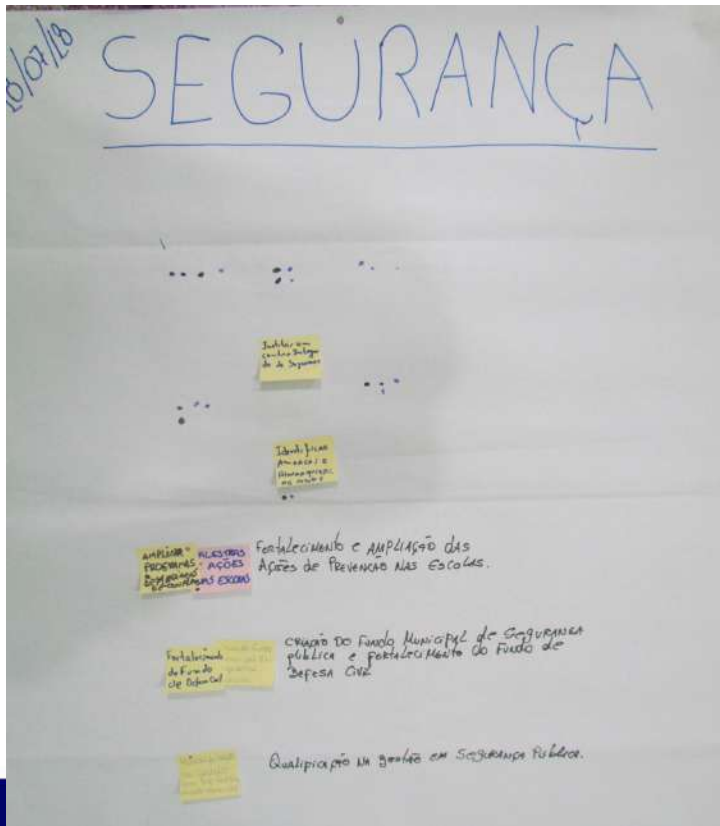 18/07/18
SEGURANÇA
Instituir um
centro
de Segurança
Identificar
Ameaças e
AMPLIAR
PROGRAMAS
PALESTRAS
AÇÕES
NAS ESCOLAS
Fortalecimento e AMPLIAÇÃO DAS
Ações de PREVENÇÃO NAS ESCOLAS.
Fortalecimento
do Fundo
de Defesa Civil
CRIAÇÃO DO FUNDO MUNICIPAL de SEGURANÇA
pública e FORTALECIMENTO do FUNDO de
DEFESA CIVIL
Qualificação NA gestão em SEGURANÇA Pública.